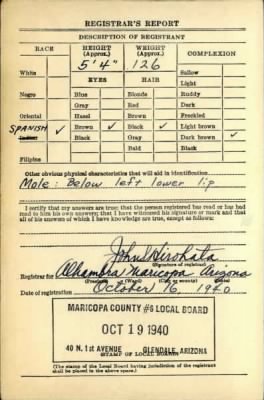 REGISTRAR'S REPORT
DESCRIPTION OF REGISTRANT
RACE HEIGHT (Approx.) WEIGHT (Approx.) COMPLEXION
5'4" 126
White Sallow
EYES HAIR Light
Negro Blue Blonde Ruddy
Gray Red Dark
Oriental Hazel Brown Freckled
SPANISH ✓ Brown ✓ Black ✓ Light brown
Black Gray Dark brown ✓
Bald Black
Filipino
Other obvious physical characteristics that will aid in identification
Mole: Below left lower lip
I certify that my answers are true; that the person registered has read or has had
read to him his own answers; that I have witnessed his signature or mark and that
all of his answers of which I have knowledge are true, except as follows:
John Hirohata
(Signature of registrar)
Registrar for Alhambra Maricopa Arizona
(Precinct) (Ward) (City or county) (State)
Date of registration October 16, 1940
MARICOPA COUNTY #6 LOCAL BOARD
OCT 19 1940
40 N. 1st AVENUE GLENDALE, ARIZONA
STAMP OF LOCAL BOARD
(The stamp of the Local Board having jurisdiction of the registrant shall be
placed in the above space.)